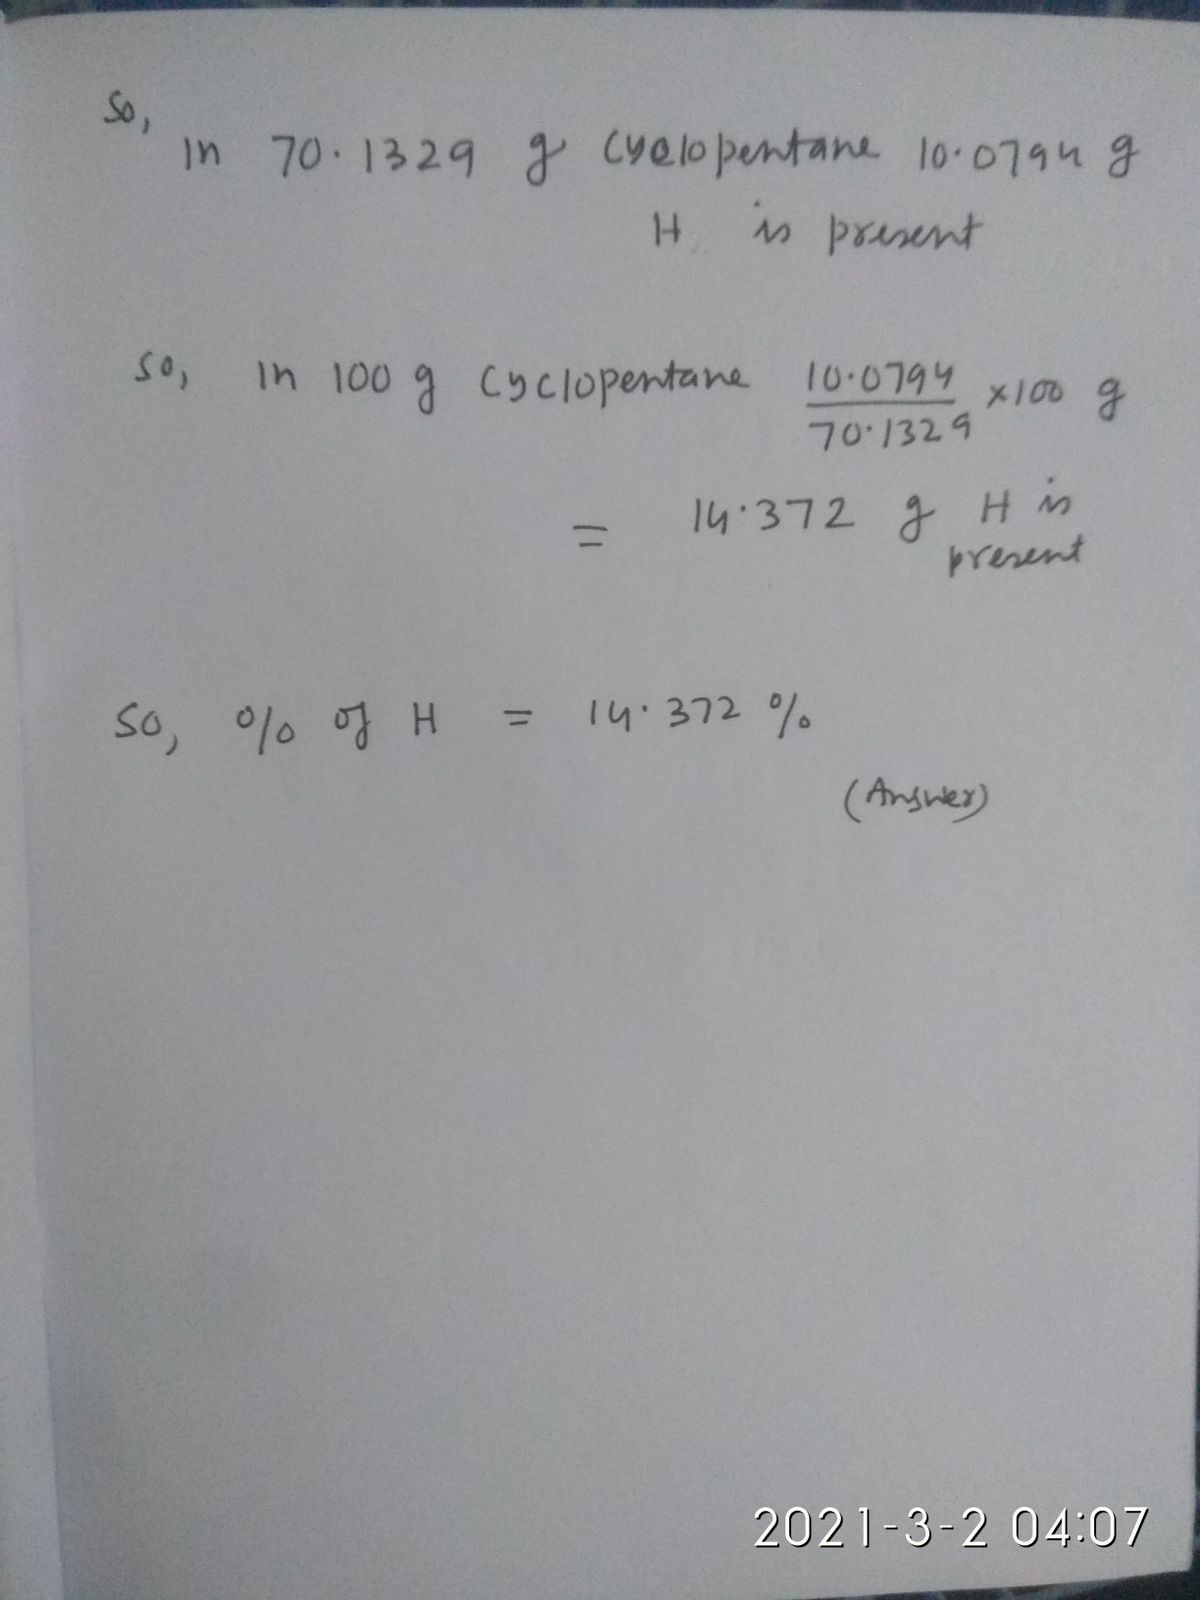 So,
In 70.1329 g cyclopentane 10.0794 g
H is present
So, In 100 g cyclopentane 10.0794/70.1329 ×100 g
= 14.372 g H is
present
So, % of H = 14.372 %
(Answer)
2021-3-2 04:07